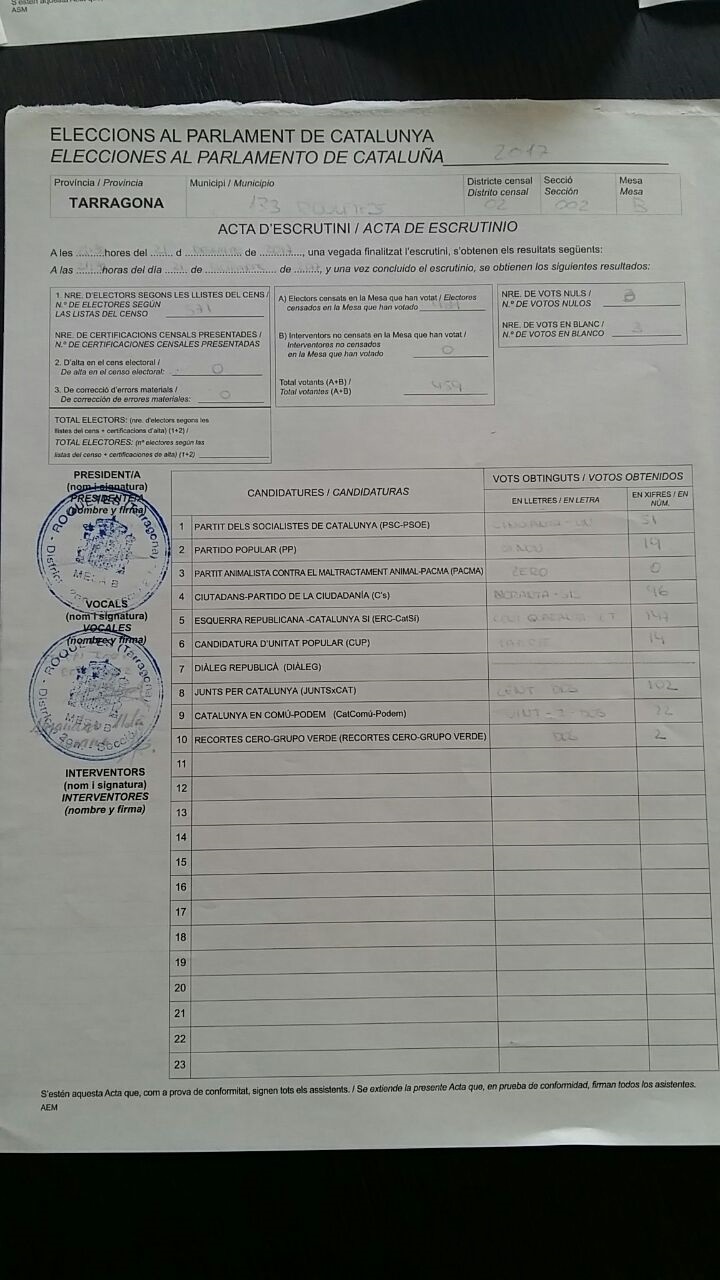 ASM
ELECCIONS AL PARLAMENT DE CATALUNYA
ELECCIONES AL PARLAMENTO DE CATALUÑA 2017
Província / Provincia
TARRAGONA
Municipi / Municipio
133
Districte censal
Distrito censal
02
Secció
Sección
002
Mesa
Mesa
B
ACTA D'ESCRUTINI / ACTA DE ESCRUTINIO
A les hores del d de , una vegada finalitzat l'escrutini, s'obtenen els resultats següents:
A las horas del día de de , y una vez concluido el escrutinio, se obtienen los siguientes resultados:
1. NRE. D'ELECTORS SEGONS LES LLISTES DEL CENS /
N.º DE ELECTORES SEGÚN
LAS LISTAS DEL CENSO 571
NRE. DE CERTIFICACIONS CENSALS PRESENTADES /
N.º DE CERTIFICACIONES CENSALES PRESENTADAS
2. D'alta en el cens electoral /
De alta en el censo electoral: 0
3. De correcció d'errors materials /
De corrección de errores materiales: 0
TOTAL ELECTORS: (nre. d'electors segons les
llistes del cens + certificacions d'alta) (1+2) /
TOTAL ELECTORES: (nº electores según las
listas del censo + certificaciones de alta) (1+2)
A) Electors censats en la Mesa que han votat / Electores
censados en la Mesa que han votado
B) Interventors no censats en la Mesa que han votat /
Interventores no censados
en la Mesa que han votado 0
Total votants (A+B) /
Total votantes (A+B) 459
NRE. DE VOTS NULS /
N.º DE VOTOS NULOS 3
NRE. DE VOTS EN BLANC /
N.º DE VOTOS EN BLANCO 3
PRESIDENT/A
(nom i signatura)
PRESIDENTE/A
(nombre y firma)
ROQUETES (Tarragona)
MESA B
VOCALS
(nom i signatura)
VOCALES
(nombre y firma)
ROQUETES (Tarragona)
MESA B
INTERVENTORS
(nom i signatura)
INTERVENTORES
(nombre y firma)
CANDIDATURES / CANDIDATURAS
VOTS OBTINGUTS / VOTOS OBTENIDOS
EN LLETRES / EN LETRA
EN XIFRES / EN NÚM.
1 PARTIT DELS SOCIALISTES DE CATALUNYA (PSC-PSOE) CINQUANTA-UN 51
2 PARTIDO POPULAR (PP) 19
3 PARTIT ANIMALISTA CONTRA EL MALTRACTAMENT ANIMAL-PACMA (PACMA) ZERO 0
4 CIUTADANS-PARTIDO DE LA CIUDADANÍA (C's) NORANTA-SIS 96
5 ESQUERRA REPUBLICANA -CATALUNYA SI (ERC-CatSí) 147
6 CANDIDATURA D'UNITAT POPULAR (CUP) 14
7 DIÀLEG REPUBLICÀ (DIÀLEG)
8 JUNTS PER CATALUNYA (JUNTSxCAT) CENT DOS 102
9 CATALUNYA EN COMÚ-PODEM (CatComú-Podem) VINT-I-DOS 22
10 RECORTES CERO-GRUPO VERDE (RECORTES CERO-GRUPO VERDE) DOS 2
11
12
13
14
15
16
17
18
19
20
21
22
23
S'estén aquesta Acta que, com a prova de conformitat, signen tots els assistents. / Se extiende la presente Acta que, en prueba de conformidad, firman todos los asistentes.
AEM